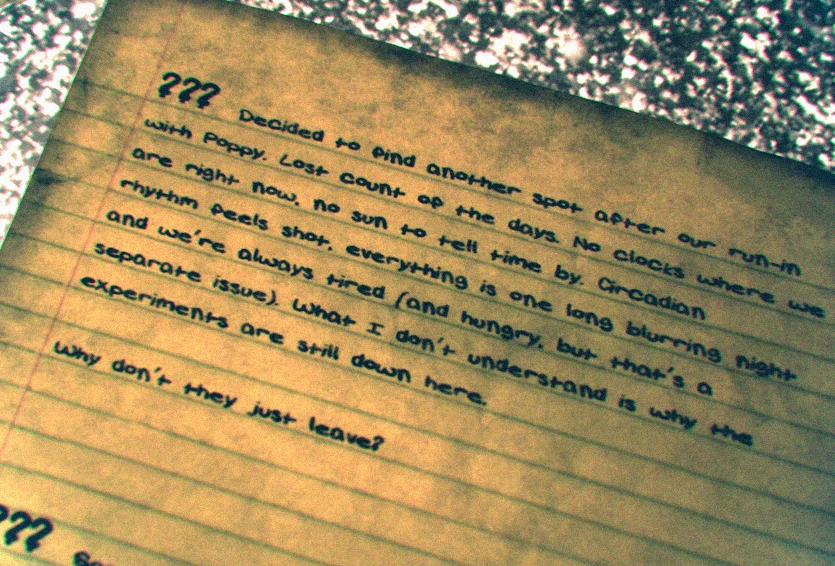 ???
Decided to find another spot after our run-in
with Poppy. Lost count of the days. No clocks where we
are right now, no sun to tell time by. Circadian
rhythm feels shot, everything is one long blurring night
and we're always tired (and hungry, but that's a
separate issue). What I don't understand is why the
experiments are still down here.
Why don't they just leave?
???